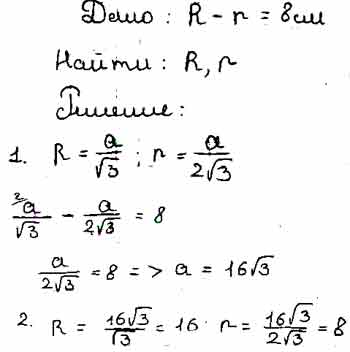 Дано : R - r = 8см
Найти : R, r
Решение :
1. R = a/√3 ; r = a/2√3
²⁄a/√3 - a/2√3 = 8
a/2√3 = 8 => a = 16√3
2. R = 16√3/√3 = 16 r = 16√3/2√3 = 8